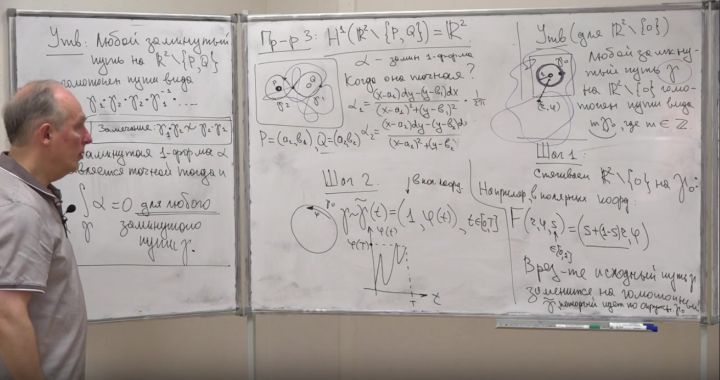 Утв: Любой замкнутый
путь на ℝ²\{P,Q}
гомотопен пути вида
γ₁·γ₂·γ₂·γ₁⁻¹·....
Замечание: γ₁·γ₂≁γ₂·γ₁
замкнутая 1-форма α
является точной тогда и
∫ α=0 для любого
γ замкнутого
пути γ.
Пр-р 3: H¹(ℝ²\{P,Q})=ℝ²
α – замкн 1-форма
Когда она точная?
P Q
γ₂ γ₁
α₁= (x-a₁)dy-(y-b₁)dx / (x-a₁)²+(y-b₁)² · 1/2π
P=(a₁,b₁), Q=(a₂,b₂)
α₂= (x-a₂)dy-(y-b₂)dx / (x-a₂)²+(y-b₂)²
Шаг 2.
в пол коорд.
γ₀
φ
γ~γ̃(t)=(1, φ(t)), t∈[0,T]
φ(t)
φ(T)
T t
Утв (для ℝ²\{0})
γ₀
(r,φ)
Любой замкну-
тый путь γ
на ℝ²\{0} гомо-
топен пути вида
mγ₀, где m∈ℤ.
Шаг 1:
Стягиваем ℝ²\{0} на γ₀:
Например, в полярных коорд:
F(r,φ,s)=(s+(1-s)r,φ)
∈[0,1]
В рез-те исходный путь γ
заменится на гомотопный
γ̃ который идет по окружн. γ₀